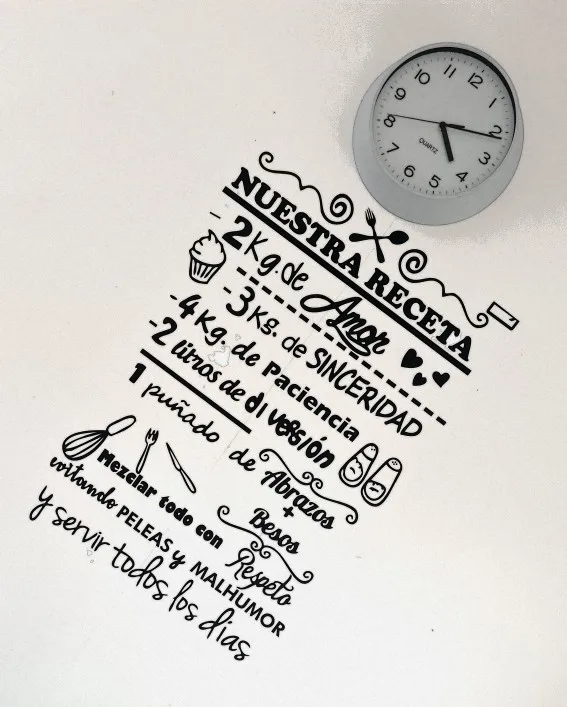 11 12 1
10 2
9 3
8 4
7 6 5
QUARTZ
NUESTRA RECETA
-2Kg. de Amor
-3Kg. de SINCERIDAD
-4Kg. de Paciencia
-2 litros de diversión
1 puñado de Abrazos
+
Besos
Mezclar todo con Respeto
evitando PELEAS y MALHUMOR
y servir todos los días